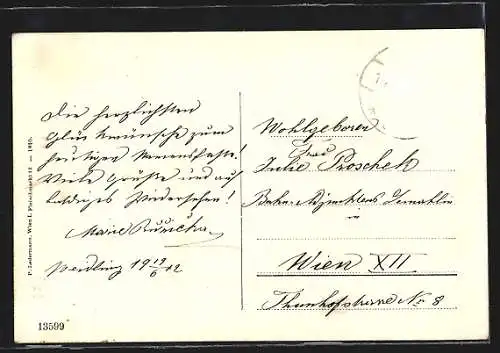 Die herzlichsten
Glückwünsche zum
heutigen Namensfeste!
Viele Grüße und auf
baldiges Wiedersehen!
Marie
19 19/6 12
Wohlgeboren
Frau
Julie Proschek
Bahn-Adjunktens Gemahlin
in
Wien XII
No 8
P. Ledermann, Wien I, Fleischmarkt 12 — 1910.
13599